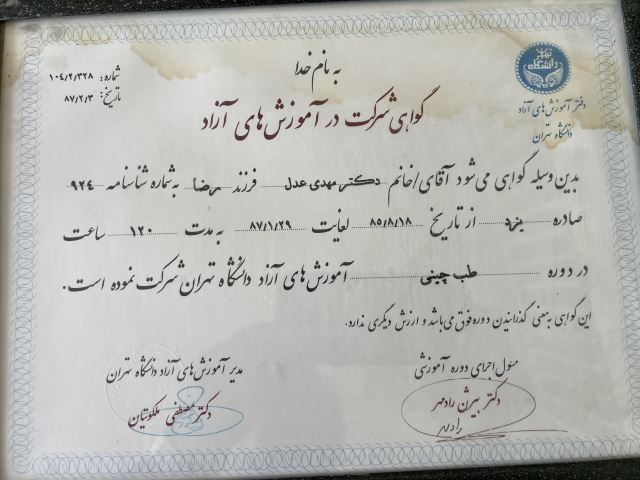 به نام خدا
شماره: ۱۰۴/۲/۳۲۸
تاریخ: ۸۷/۲/۳
دانشگاه
دفتر آموزش های آزاد
دانشگاه تهران
گواهی شرکت در آموزش های آزاد
بدین وسیله گواهی می شود آقای/خانم دکتر مهدی عدل فرزند رضا به شماره شناسنامه ۹۲۴
صادره یزد از تاریخ ۸۵/۸/۱۸ لغایت ۸۷/۱/۲۹ به مدت ۱۲۰ ساعت
در دوره طب چینی آموزش های آزاد دانشگاه تهران شرکت نموده است.
این گواهی به معنی گذرانیدن دوره فوق می باشد و ارزش دیگری ندارد.
مسئول اجرای دوره آموزشی
دکتر بیژن رادمهر
مدیر آموزش های آزاد دانشگاه تهران
دکتر مصطفی ملکوتیان